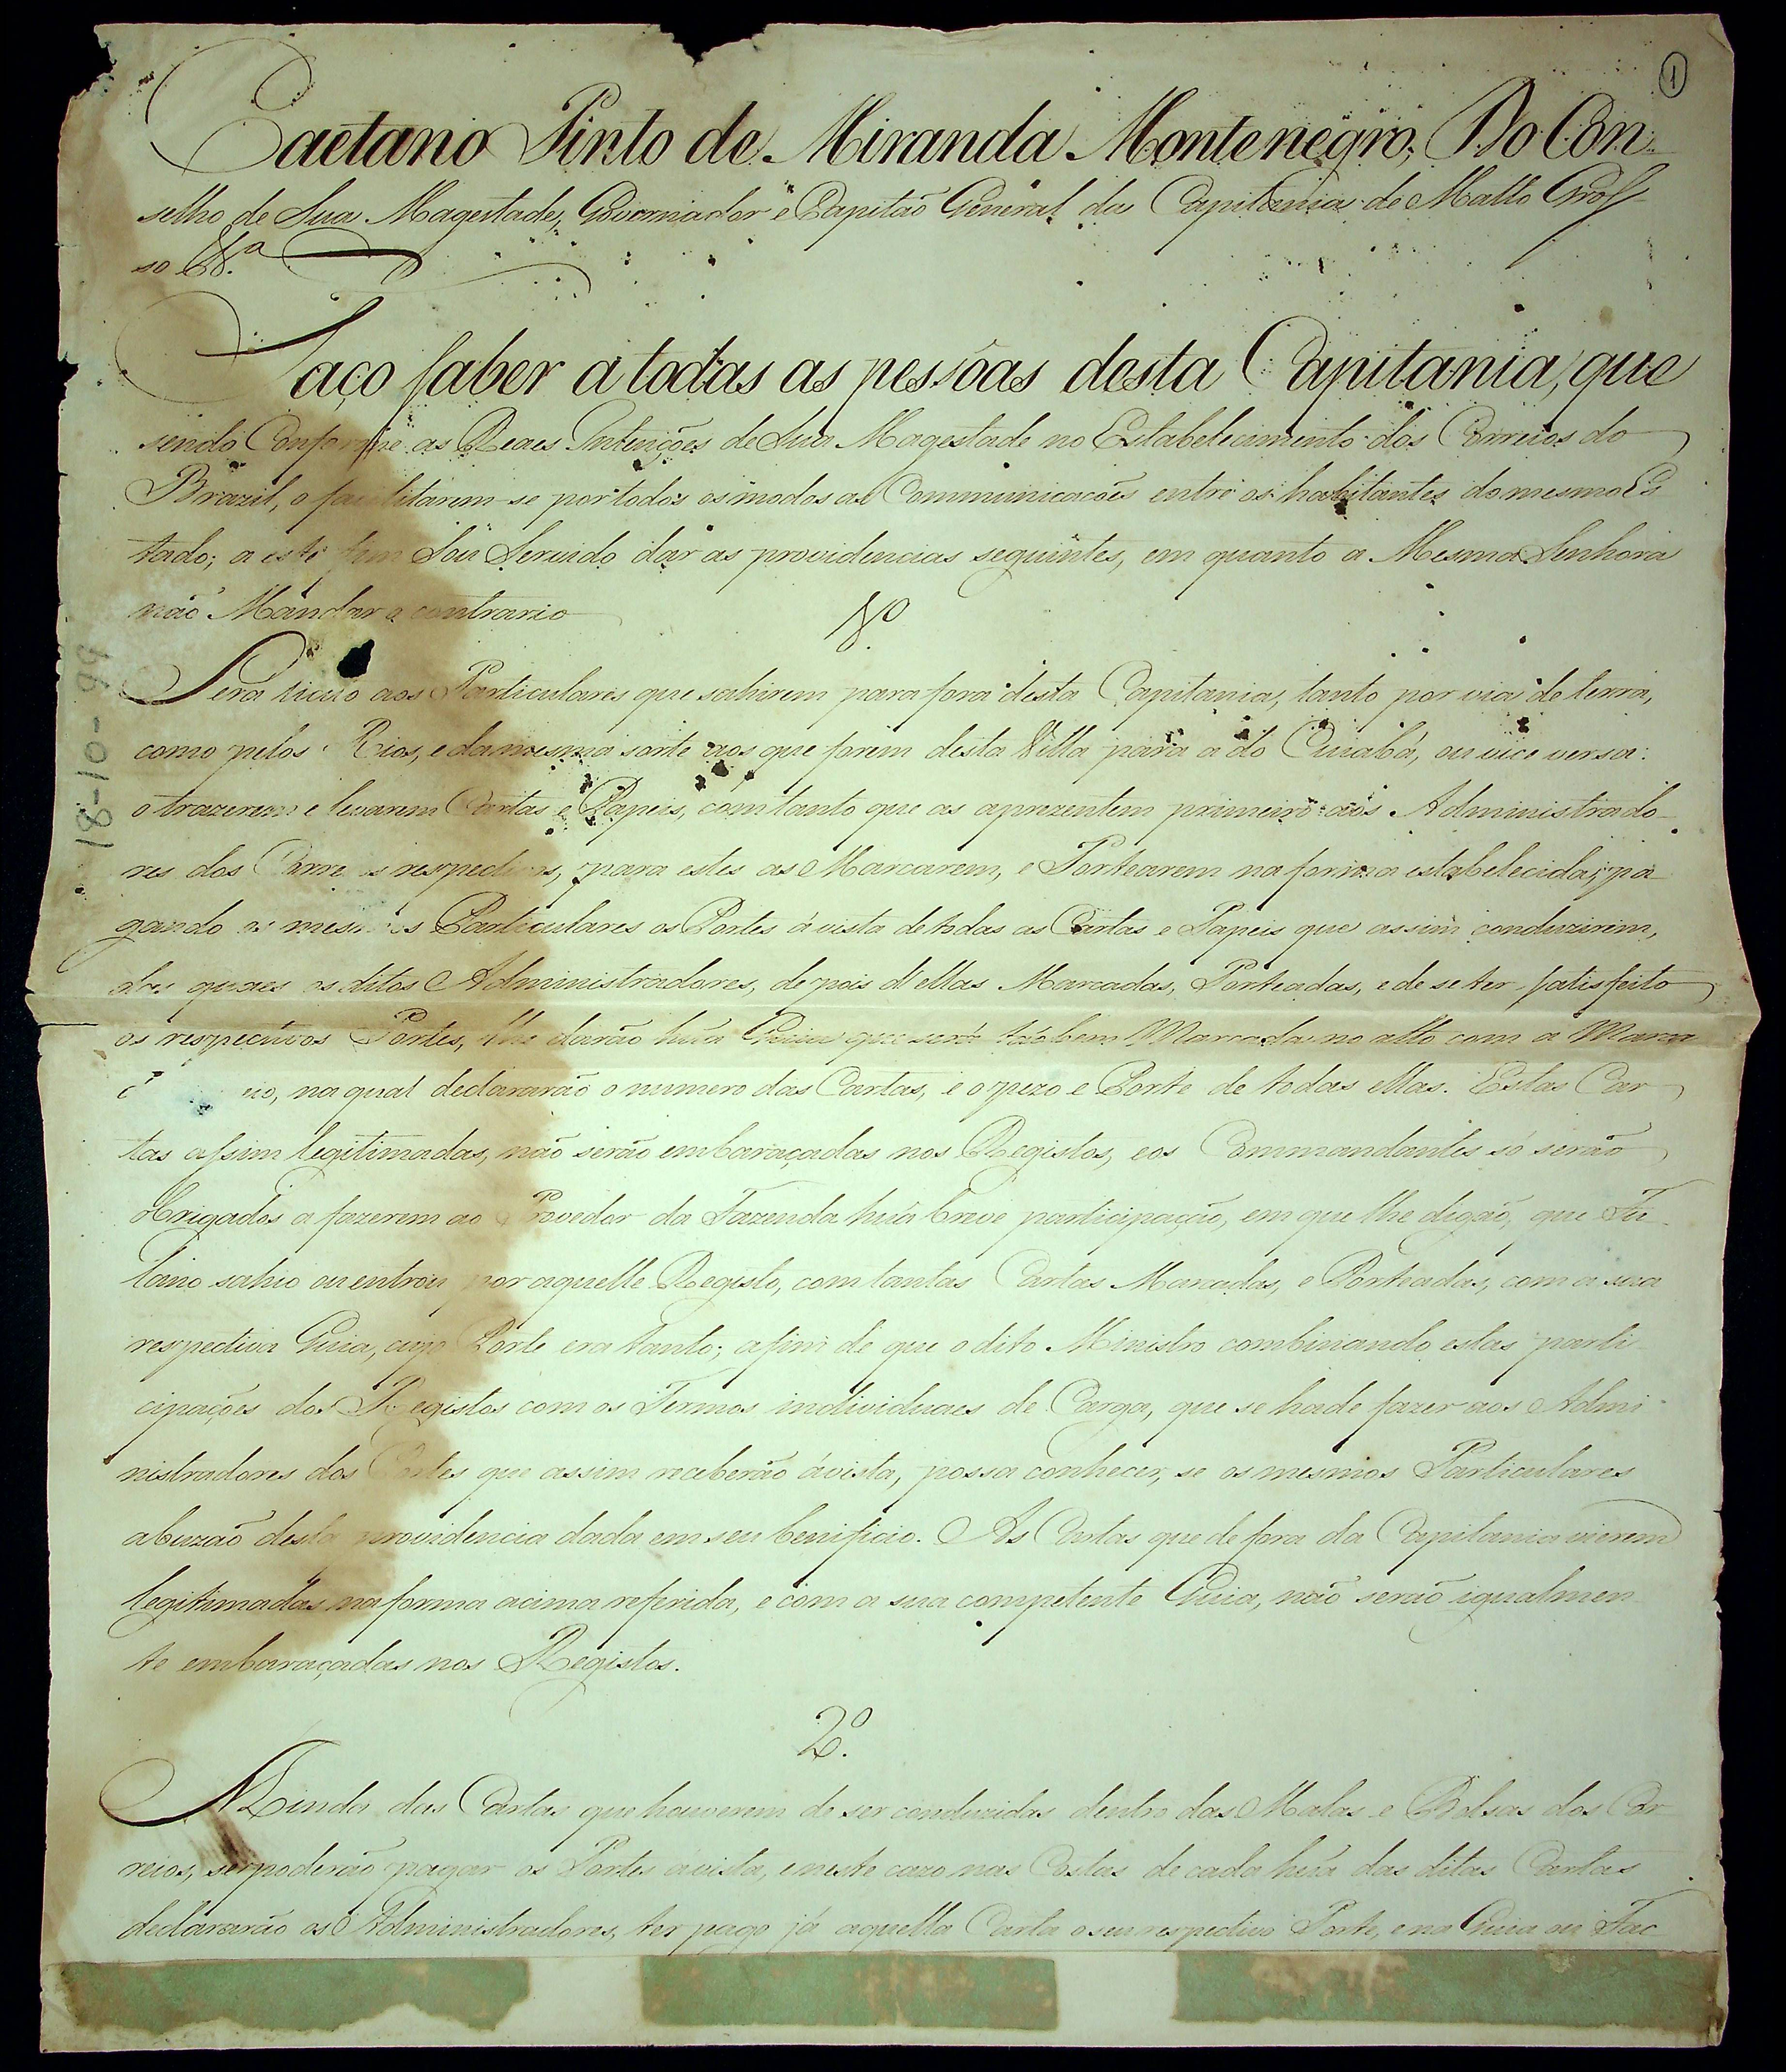 1
Caetano Pinto de Miranda Montenegro, Do Con-
selho de Sua Magestade, Governador e Capitaõ General da Capitania de Matto Gros-
so &.ª
Faço saber a todas as pessôas desta Capitania, que
sendo Conforme as Reaes Intenções de Sua Magestade no Estabelecimento dos Correios do
Brazil, o facilitarem-se por todos os modos as Communicacões entre os habitantes do mesmo Es
tado; a este fim Sou Servido dar as providencias seguintes, em quanto a Mesma Senhora
naõ Mandar o contrario
1º.
Sera licito aos Particulares que sahirem para fora desta Capitania, tanto por via de terra,
como pelos Rios, e da mesma sorte aos que forem desta Villa para a do Cuiabá, ou vice versa:
o trazerem e levarem Cartas e Papeis, com tanto que as aprezentem primeiro aos Administrado-
res dos Correios respectivos, para estes as Marcarem, e Portearem na forma estabelecida, pa
gando os mesmos Particulares os Portes á vista de todas as Cartas e Papeis que assim conduzirem,
dos quaes os ditos Administradores, depois d'ellas Marcadas, Porteadas, e de se ter satisfeito
os respectivos Portes, lhe darão hũa Guia que será tãobem Marcada no alto com a Marca
na qual declararão o numero das Cartas, e o pezo e Porte de todas ellas. Estas Car
tas assim legitimadas, não serão embaraçadas nos Registos, e os Commandantes só serão
obrigados a fazerem ao Provedor da Fazenda hũa breve participação, em que lhe digão, que Fu-
lano sahio ou entrou por aquelle Registo, com tantas Cartas Marcadas, e Porteadas, com a sua
respectiva Guia, cujo Porte era tanto; afim de que o dito Ministro combinando estas parti-
cipações dos Registos com os Termos individuaes de Carga, que se hade fazer aos Admi-
nistradores dos Portes que assim receberão ávista, possa conhecer, se os mesmos Particulares
abuzaõ desta providencia dada em seu beneficio. As Cartas que de fora da Capitania vierem
legitimadas na forma acima referida, e com a sua competente Guia, não serão igualmen
te embaraçadas nos Registos.
2º.
Ainda das Cartas que houverem de ser conduzidas dentro das Malas e Bolsas dos Cor
reios, se poderão pagar os Portes ávista, e neste cazo nas Costas de cada hũa das ditas Cartas
declararão os Administradores, ter pago já aquella Carta o seu respectivo Porte, e na Guia ou Fac
18-10-99